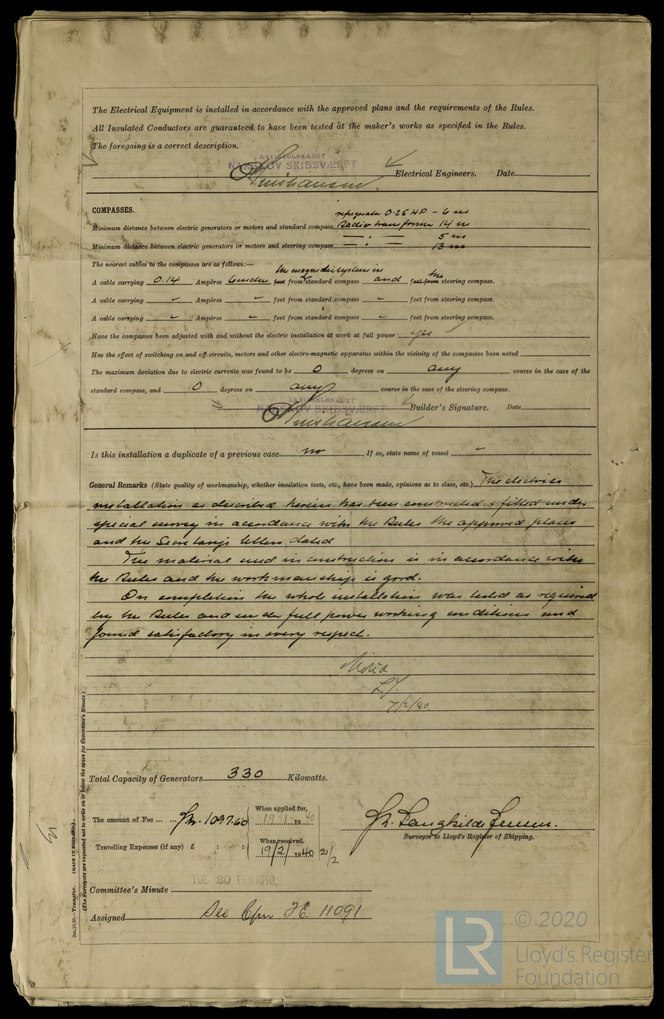 The Electrical Equipment is installed in accordance with the approved plans and the requirements of the Rules.
All Insulated Conductors are guaranteed to have been tested at the maker's works as specified in the Rules.
The foregoing is a correct description.
AKTIESELSKABET
NAKSKOV SKIBSVÆRFT
Electrical Engineers. Date
COMPASSES.
refrigerator 0.25 HP – 6 m
Minimum distance between electric generators or motors and standard compass Radio transformer 14 m
5 m
Minimum distance between electric generators or motors and steering compass 13 m
The nearest cables to the compasses are as follows:—
the magnetic system in
A cable carrying 0.14 Ampères feet from standard compass and the feet from steering compass.
A cable carrying " Ampères " feet from standard compass " feet from steering compass.
A cable carrying " Ampères " feet from standard compass " feet from steering compass.
Have the compasses been adjusted with and without the electric installation at work at full power yes
Has the effect of switching on and off circuits, motors and other electro-magnetic apparatus within the vicinity of the compasses been noted
The maximum deviation due to electric currents was found to be 0 degrees on any course in the case of the
standard compass, and 0 degrees on any course in the case of the steering compass.
AKTIESELSKABET
NAKSKOV SKIBSVÆRFT
Builder's Signature. Date
Is this installation a duplicate of a previous case no If so, state name of vessel "
General Remarks (State quality of workmanship, whether insulation tests, etc., have been made, opinions as to class, etc.) The electric
installation as described herein has been constructed & fitted under
special survey in accordance with the Rules the approved plans
and the Secretary's letters dated
The material used in construction is in accordance with
the Rules and the workmanship is good.
On completion the whole installation was tested as required
by the Rules and under full power working conditions and
found satisfactory in every respect.
Noted
7/2/40
Total Capacity of Generators 330 Kilowatts.
The amount of Fee ... ... Kr. 1097.60
When applied for,
19.1.1940
Travelling Expenses (if any) £ : :
When received,
19/2/1940 21/2
Surveyor to Lloyd's Register of Shipping.
TUE 20 FEB 1940
Committee's Minute
Assigned See Cpn F.E. 11091
2m.11.38.—Transfer. (MADE IN ENGLAND.)
(The Surveyors are requested not to write on or below the space for Committee's Minute.)
LR
© 2020
Lloyd's Register
Foundation